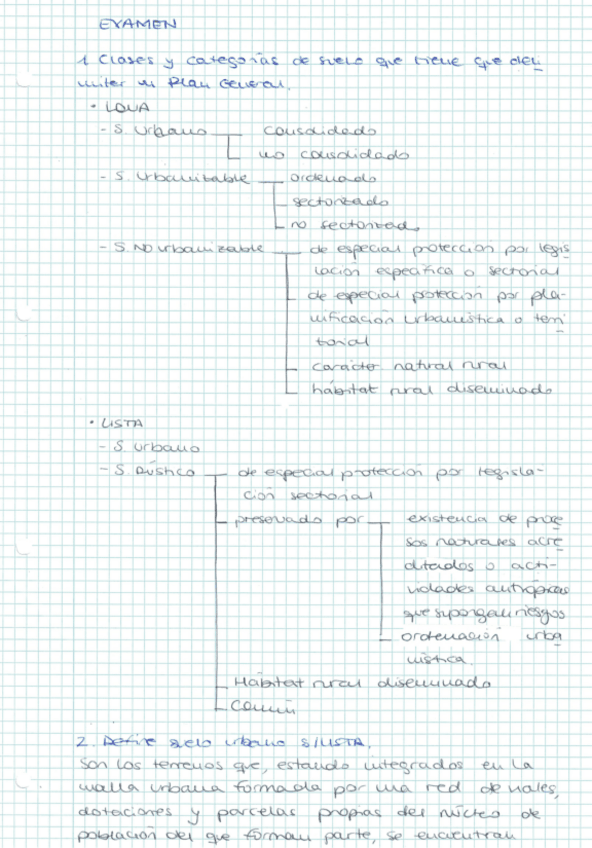 EXAMEN
1. Clases y categorías de suelo que tiene que deli
mitar un Plan General.
• LOUA
- S. Urbano
consolidado
no consolidado
- S. Urbanizable
ordenado
sectorizado
no sectorizad
- S. No urbanizable
de especial protección por legis
lación específica o sectorial
de especial protección por pla-
nificación urbanística o terri
torial
carácter natural rural
hábitat rural diseminado
• LISTA
- S. urbano
- S. Rústico
de especial protección por legisla-
ción sectorial
preservado por
existencia de proce
sos naturales acre
ditados o acti-
vidades antrópicas
que supongan riesgos
ordenación urba
nística.
Hábitat rural diseminado
Común
2. Define suelo urbano s/LISTA.
Son los terrenos que, estando integrados en la
malla urbana formada por una red de viales,
dotaciones y parcelas propias del núcleo de
población del que forman parte, se encuentran